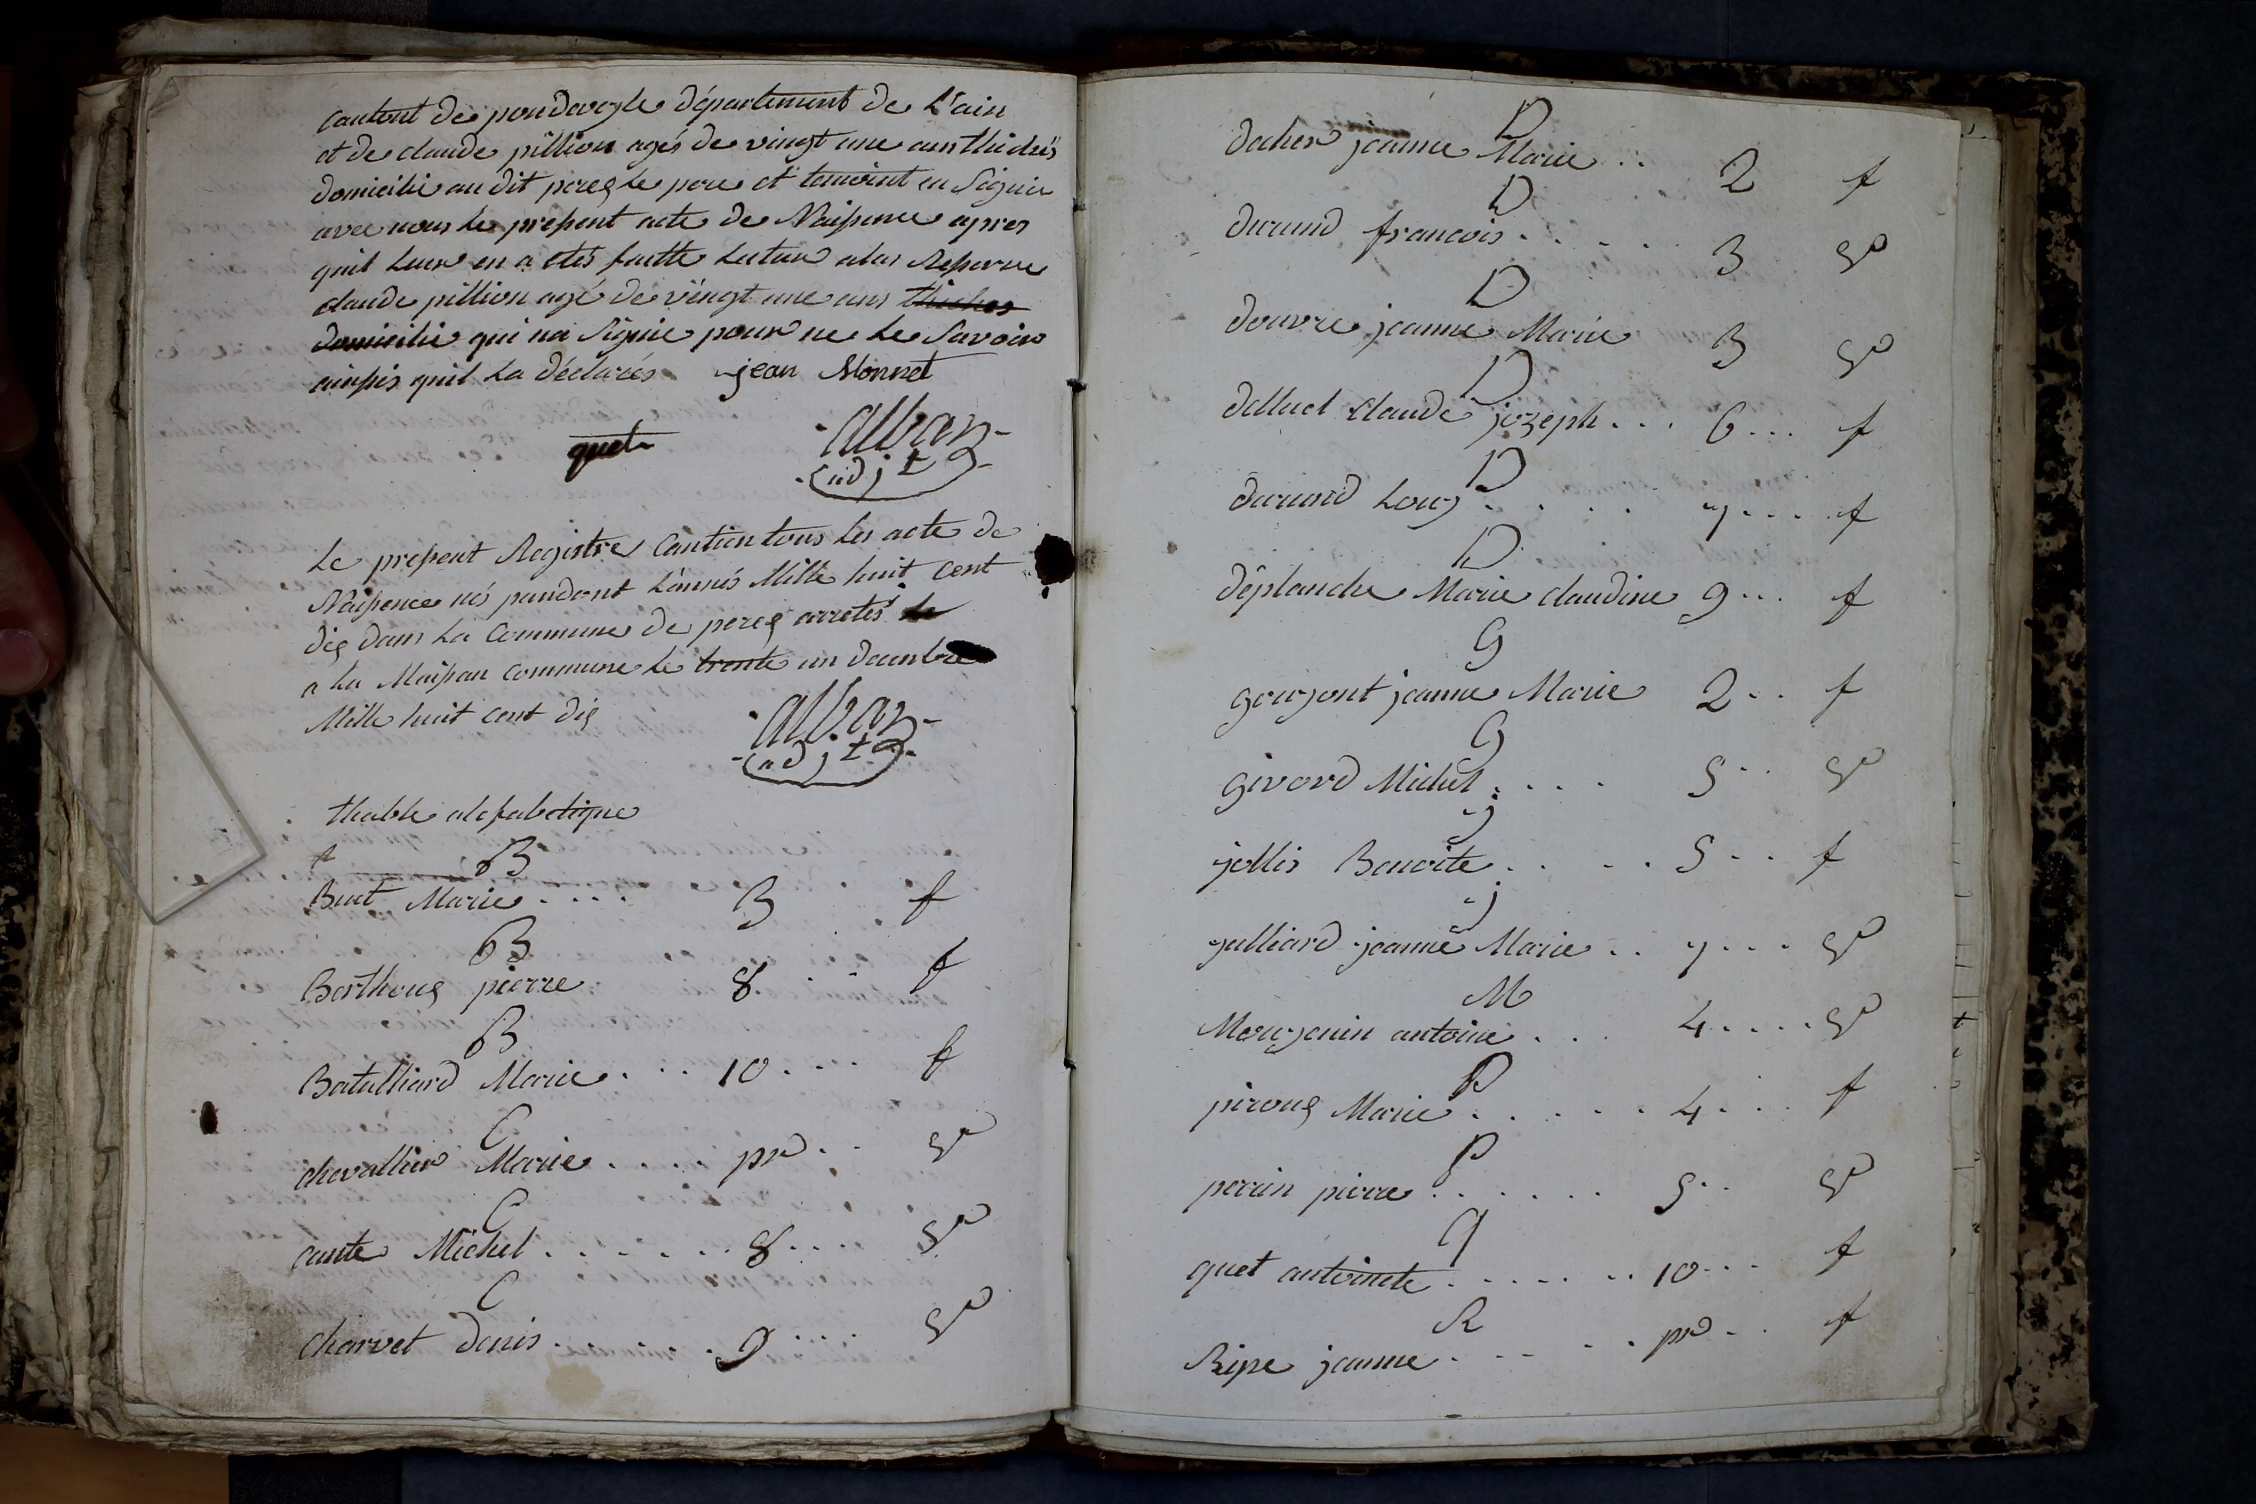 cantont de pondveyle département de L'ain
et de claude pillion agés de vingt une ans
domicilié au dit perex Le pere et temoint en Signier
avec nous Le present acte de Naissence apres
quil Leur en a etés faitte Lecture a las Reserve
claude pillion agé de vingt une ans
domicilié qui na Signie pour ne Le Savoir
ainssis quil La déclarés jean Monnet
quet alban
adjt
Le present Registre Contien tous Les acte de
Naissence nés pandont L'annés Mille huit cent
dix dans La Commune de perex arretés
a La Maison Commune Le trente un decembre
Mille huit cent dix alban
adjt
thable alefabetique
B
Buat Marie.... 3 f
B
Berthoux pierre 8... f
B
Batalliard Marie... 10.... f
C
chevallier Marie.... pr... Gr
C
cante Michel....... 8.... Gr
C
charvet denis...... 9.... Gr
D
docher jeanne Marie.. 2 f
D
durand francois..... 3 Gr
D
douvre jeanne Marie 3 Gr
D
delluel claude jozeph... 6... f
D
durand Louy..... 7.... f
D
déplanche Marie claudine 9... f
G
gouyont jeanne Marie 2... f
G
givord Michel.... 5.. Gr
j
jollis Benoite..... 5... f
j
julliard jeanne Marie.. 7.... Gr
M
Mouyenin antoine... 4.... Gr
P
piroux Marie...... 4.... f
P
perrin pierre...... 5.. Gr
q
quet antoinete...... 10... f
R
Ripe jeanne..... pr... f